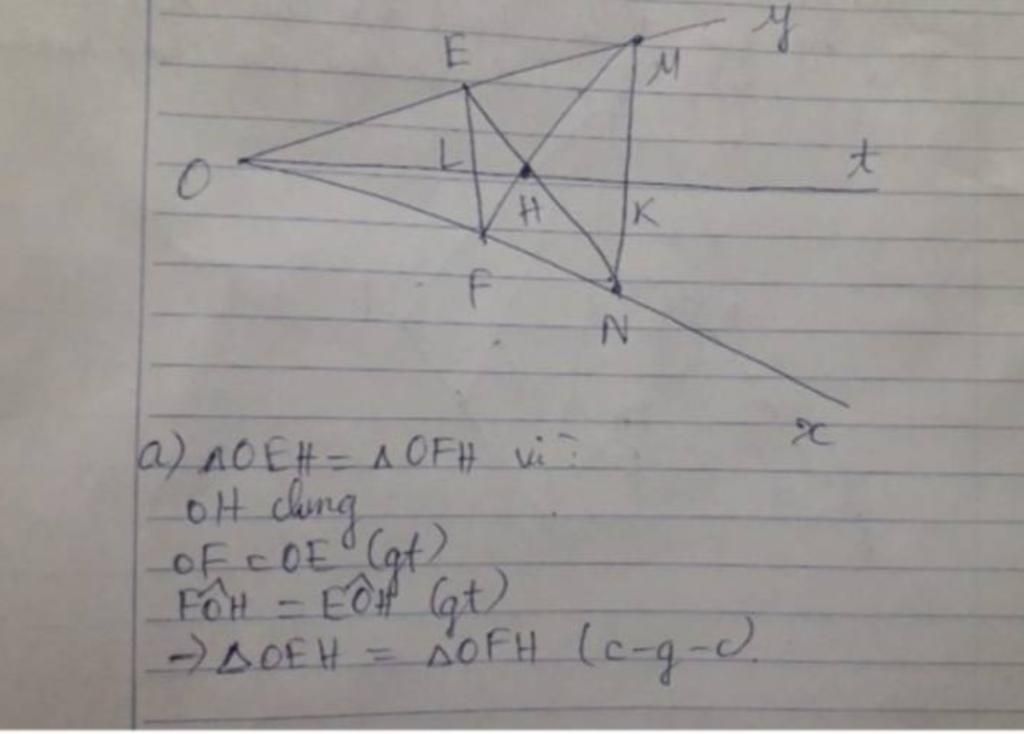 y
E
M
O
L
t
H
K
F
N
x
a) ΔOEH = ΔOFH vì:
OH chung
OF = OE (gt)
FÔH = EÔH (gt)
→ ΔOEH = ΔOFH (c-g-c).